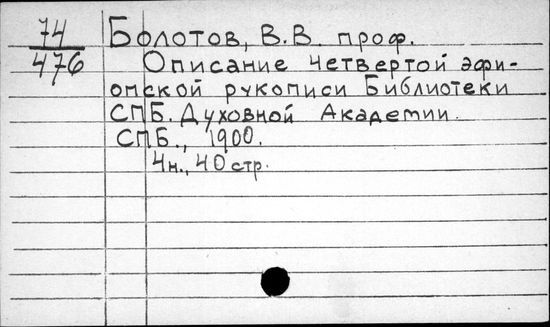 74
476
Болотов, В.В. проф.
Описание четвертой эфи-
опской рукописи Библиотеки
СПБ. Духовной Академии.
СПБ., 1900.
4н., 40 стр.